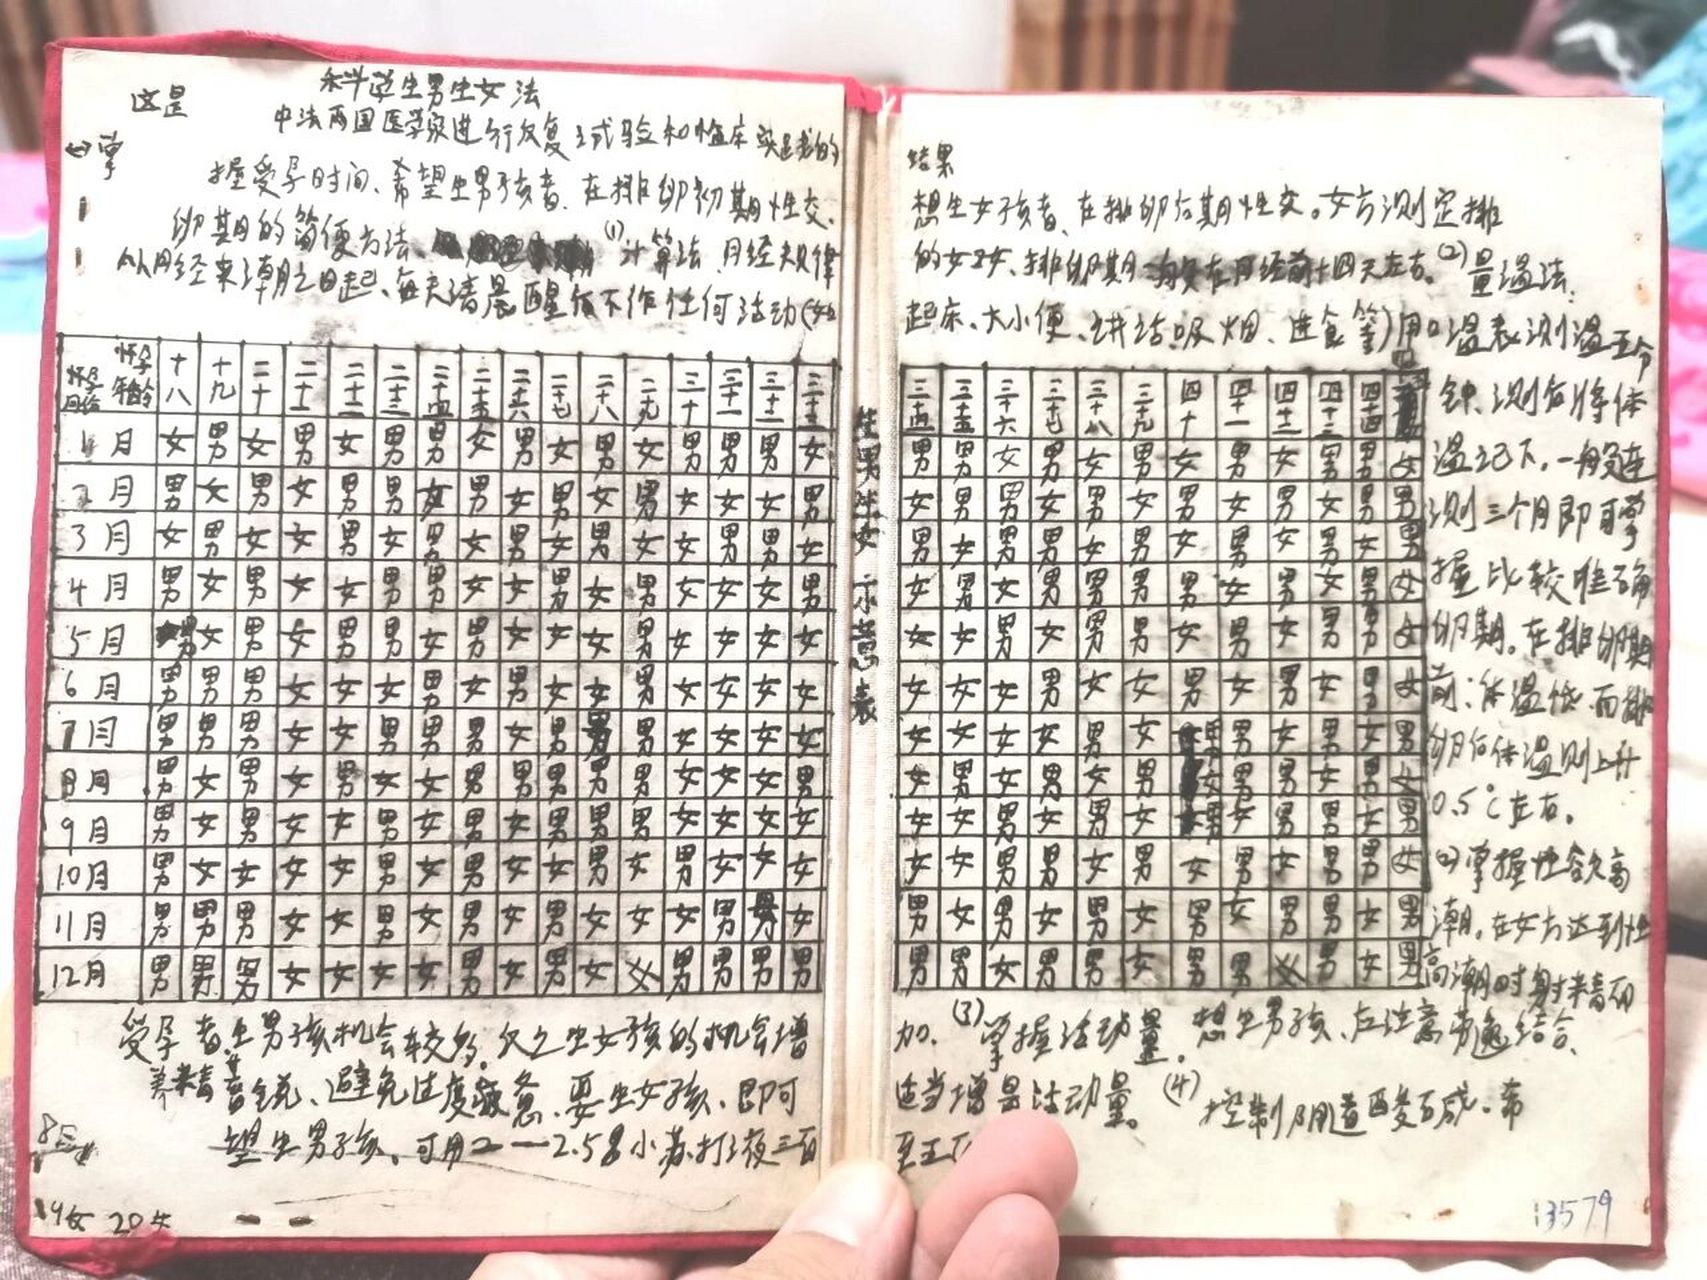 科学生男生女法
这是 中法两国医学家进行反复试验和临床实践的
结果
掌
握受孕时间、希望生男孩者、在排卵初期性交、
想生女孩者、在排卵后期性交。女方测定排
卵期的简便方法、(1)计算法、月经规律
的女孜、排卵期 在月经前十四天左右。(2)量温法:
从月经来潮之日起、每天清晨醒 不作任何活动(如
起床、大小便、讲话、吸烟、进食等)用口温表测温五分
钟、测后将体
温记下,一般连
测三个月即可掌
握比较准确
卵期。在排卵期
前:体温低、而排
卵后体温则上升
0.5℃左右。
掌握性欲高
潮、在女方达到性
高潮时射精
生男生女示意表
怀孕年龄 怀孕月份 十八 十九 二十 二十一 二十二 二十三 二十四 二十五 二十六 二十七 二十八 二十九 三十 三十一 三十二 三十三 三十四 三十五 三十六 三十七 三十八 三十九 四十 四十一 四十二 四十三 四十四
1月 女 男 女 男 女 男 男 女 男 女 男 女 男 男 男 女 男 男 女 男 女 男 女 男 女 男 男 女
2月 男 女 男 女 男 男 女 男 女 男 女 男 女 女 女 男 女 男 男 女 男 女 男 女 男 女 男 男
3月 女 男 女 女 男 女 男 女 男 女 男 女 女 男 男 女 男 女 男 女 女 男 女 男 女 男 女 男
4月 男 女 男 女 女 男 男 女 女 男 女 男 女 女 女 男 女 男 女 男 男 男 男 女 男 女 男 女
5月 男 女 男 女 男 男 女 男 女 女 女 男 女 女 女 女 女 女 男 女 男 男 女 男 女 男 男 女
6月 男 男 男 女 女 女 男 女 男 女 女 男 女 女 女 女 女 女 女 男 女 女 男 女 男 女 男 女
7月 男 男 男 女 女 男 男 男 女 男 男 男 女 女 女 女 女 女 女 女 男 女 男 男 女 男 女 男
8月 男 女 男 女 男 女 女 男 男 男 男 男 女 女 女 男 女 男 女 男 女 男 女 男 男 女 男 女
9月 男 女 男 女 女 男 女 男 女 男 男 男 女 女 女 女 女 女 男 女 男 女 男 女 男 男 女 男
10月 男 女 女 女 女 男 女 男 女 女 男 女 男 女 女 女 女 女 男 男 女 男 女 男 女 男 男 女
11月 男 男 男 女 女 男 女 男 女 男 女 女 女 男 男 女 男 女 男 女 男 女 男 女 男 男 女 男
12月 男 男 男 女 女 女 女 男 女 男 女 女 男 男 男 男 男 男 女 男 男 女 男 男 女 男 女 男
受孕者生男孩机会较多。反之生女孩的机会增
加、(3)掌握活动量。想生男孩、应注意劳逸结合、
养精蓄锐、避免过度疲惫、要生女孩、即可
适当增 活动量。(4)控制阴道酸 、希
望生男孩。可用2—2.5 小苏打液三百
至五
14女 20女
13579